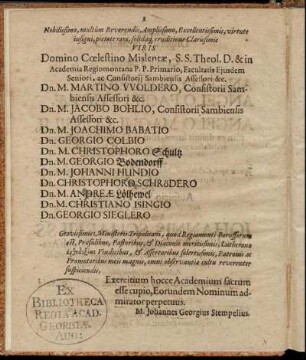 Nobilissimo, multum Reverendis, Amplissimo, Excellentissimis, virtute
insigni, pietate rara, solidaq; eruditione Clarissimis
VIRIS
Domino Cœlestino Mislentæ, S. S. Theol. D. & in
Academia Regiomontana P. P. Primario, Facultatis Ejusdem
Seniori, ac Consistorij Sambiensis Assessori &c.
Dn. M. MARTINO WOLDERO, Consistorii Sam-
biensis Assessori &c.
Dn. M. JACOBO BOHLIO, Consistorii Sambiensis
Assessori &c.
Dn. M. JOACHIMO BABATIO
Dn. GEORGIO COLBIO
Dn. M. CHRISTOPHORO Schultz
Dn. M. GEORGIO Bodendorff
Dn. M. JOHANNI HUNDIO
Dn. CHRISTOPHORO SCHRöDERO
Dn. M. ANDREÆ Löhewel
Dn. M. CHRISTIANO ISINGIO
Dn. GEORGIO SIEGLERO
Gravissimis, Ministerii Tripolitani, quod Regiomonti Borussorum
est, Præsulibus, Pastoribus, & Diaconis meritissimis, Lutheranæ
Vindicibus, & Assertoribus solertissimis, Patronis ac
Promotoribus meis magnis, omni observantiæ cultu reverenter
suspiciendis,
Exercitium hocce Academicum sacrum
esse cupio, Eorundem Nominum ad-
mirator perpetuus.
M. Johannes Georgius Stempelius.
EX
BIBLIOTHECA
REGIA ACAD.
GEORGIÆ
AUG: